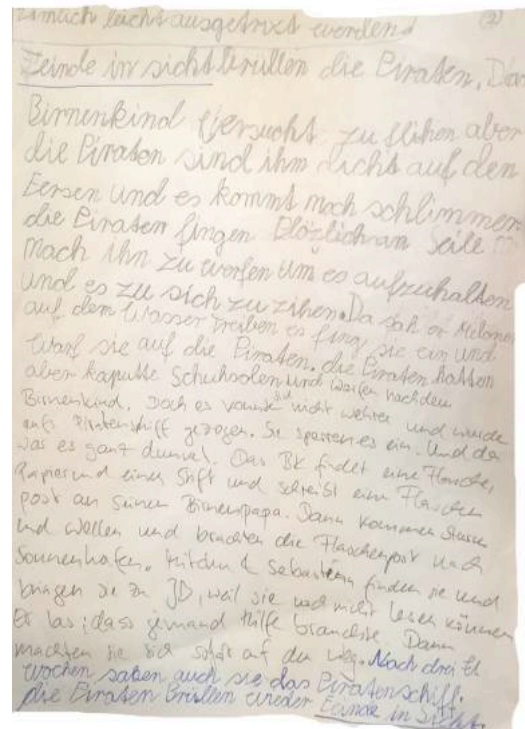 ziemlich leicht ausgetrixt werden! (2)
Feinde in sicht brüllen die Piraten. Das
Birnenkind versucht zu flihen aber
die Piraten sind ihm dicht auf den
Fersen und es kommt noch schlimmer
die Piraten fingen Plözlich an Seile
nach ihn zu werfen um es aufzuhalten
und es zu sich zu zihen. Da sah er Melonen
auf dem Wasser treiben es fing sie ein und
warf sie auf die Piraten. die Piraten hatten
aber kaputte Schuhsolen und warfen nach dem
Birnenkind. Doch es konnte sich nicht wehren und wurde
aufs Piratenschiff gezogen. Sie sperren es ein. Und da
war es ganz dunkel. Das BK findet eine Flasche,
Papier und einen Stift und schreibt eine Flaschen
post an seinen Birnenpapa. Dann kommen
und Wellen und brachten die Flaschenpost nach
Sonnenhafen. & Sebastian finden sie und
bringen sie zu JD, weil sie noch nicht lesen können
Er las, dass jemand Hilfe brauchte. Dann
machten sie sich sofort auf den Weg. Nach drei
wochen sahen auch sie das Piratenschiff.
die Piraten Brüllen wieder Feinde in Sicht.